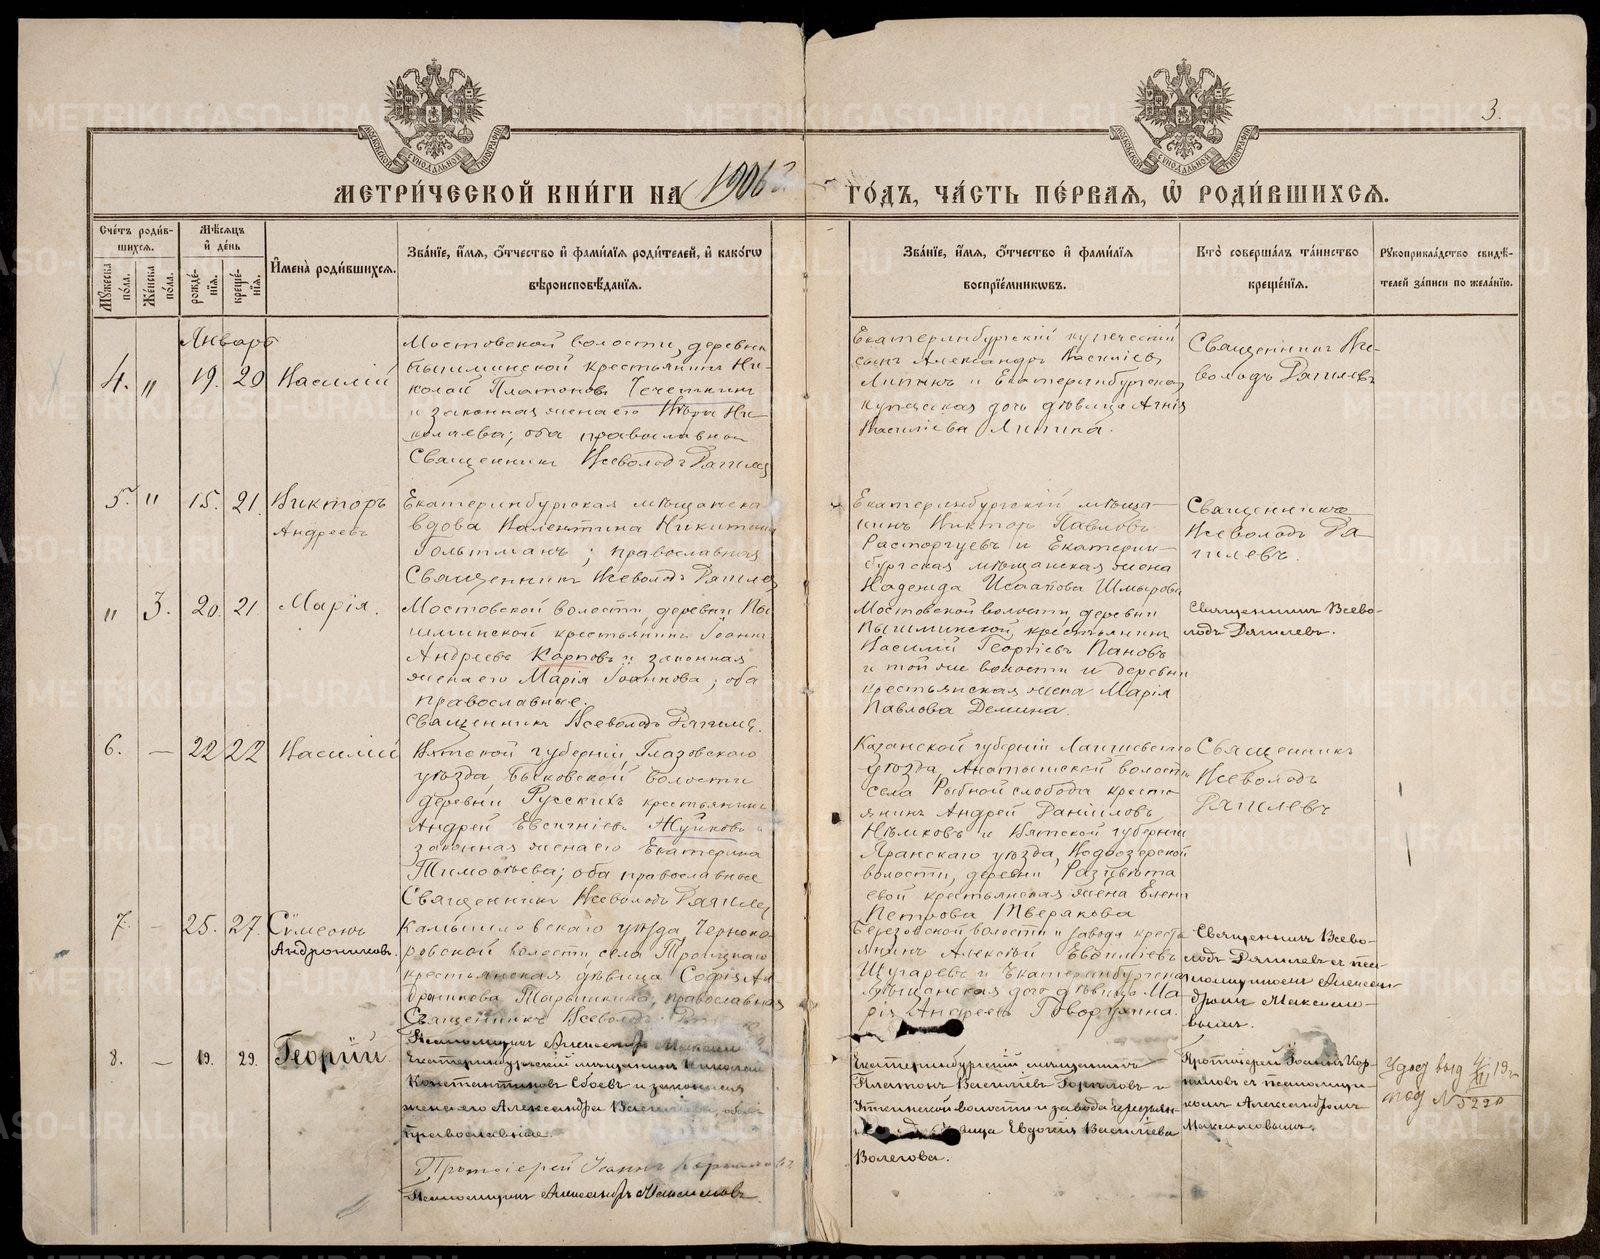 3.
МОСКОВСКОЙ СѴНОДАЛЬНОЙ ТИПОГРАФІИ
МОСКОВСКОЙ СѴНОДАЛЬНОЙ ТИПОГРАФІИ
МЕТРИ́ЧЕСКОЙ КНИ́ГИ НА 1906 ГО́ДЪ, ЧА́СТЬ ПЕ́РВАЯ, Ѡ҆ РОДИ́ВШИХСЯ.
Сче́тъ роди́в-
шихся.
Мꙋ́жеска по́ла.
Же́нска по́ла.
Мѣ́сяцъ
и҆ де́нь
рожде́-
нїя.
креще́-
нїя.
И҆мена̀ роди́вшихся.
Зва́нїе, и҆́мя, ѻ҆́тчество и҆ фами́лїя роди́телей, и҆ како́гѡ
вѣроисповѣ́данїя.
Зва́нїе, и҆́мя, ѻ҆́тчество и҆ фами́лїя
воспрїе́мникѡвъ.
Кто̀ соверша́лъ та́инство
креще́нїя.
Рꙋкоприкла́дство свидѣ́-
телей за́писи по жела́нїю.
Январь
4. „ 19. 20 Василій
Мостовской волости, деревни
Пышминской крестьянинъ Ни-
колай Платоновъ Чечеткинъ
и законная жена его Вѣра Ни-
колаева; оба православные
Священникъ Всеволодъ Рагилевъ
Екатеринбургскій купеческій
сынъ Александръ Василіевъ
Липинъ и Екатеринбургская
купеческая дочь дѣвица Агнія
Василіева Липина.
Священникъ Все-
володъ Рагилевъ
5. „ 15. 21. Викторъ
Андреевъ
Екатеринбургская мѣщанская
вдова Валентина Никитина
Гольтманъ; православная
Священникъ Всеволодъ Рагилевъ
Екатеринбургскій мѣща-
нинъ Викторъ Павловъ
Расторгуевъ и Екатерин-
бургская мѣщанская жена
Надежда Исаакова Шмырова
Священникъ
Всеволодъ Ра-
гилевъ.
„ 3. 20. 21 Марія.
Мостовской волости, деревни Пы-
шминской крестьянинъ Іоаннъ
Андреевъ Карповъ и законная
жена его Марія Іоаннова; оба
православные.
Священникъ Всеволодъ Рагилевъ.
Мостовской волости, деревни
Пышминской, крестьянинъ
Василій Георгіевъ Пановъ
и той же волости и деревни
крестьянская жена Марія
Павлова Демина.
Священникъ Всево-
лодъ Рагилевъ.
6. — 22 22 Василій
Вятской губерніи, Глазовского
уѣзда, Быковской волости
деревни Русскихъ крестьянинъ
Андрей Евсигніевъ Жуйковъ и
законная жена его Екатерина
Тимоѳеева; оба православные
Священникъ Всеволодъ Рагилевъ
Казанской губерніи Лаишевского
уѣзда, Анатышской волости
села Рыбной слободы кресть-
янинъ Андрей Даніиловъ
и Вятской губерніи
Яранскаго уѣзда,
волости, деревни
крестьянская жена Елена
Петрова Тверякова
Священникъ
Всеволодъ
Рагилевъ
7. — 25. 27. Сѵмеонъ
Андрониковъ.
Камышловскаго уѣзда Черноко-
ровской волости села Троицкаго
крестьянская дѣвица Софія Ан-
дроникова Тарышкина, православная
Священникъ Всеволодъ
Березовской волости и завода кресть-
янинъ Алексій
Щугаревъ и Екатеринбургская
мѣщанская дочь дѣвица Ма-
рія Андреева Говорухина.
Священникъ Всево-
лодъ Рагилевъ съ пса-
ломщикомъ Алексан-
дромъ Максимо-
вымъ.
8. — 19. 29. Георгій
Псаломщикъ Александръ Максимовъ
Екатеринбургскій мѣщанинъ Николай
Константиновъ Сбоевъ и законная
жена его Александра Василіева, оба
православные.
Протоіерей Іоаннъ Корниловъ
Псаломщикъ Александръ Максимовъ
Екатеринбургскій мѣщанинъ
Платонъ Василіевъ Горѣловъ и
Уткинской волости и завода крестьян-
вица Евдокія Василіева
Волегова.
Протоіерей Іоаннъ Кор-
ниловъ съ псаломщи-
комъ Александромъ
Максимовымъ.
№ 5220